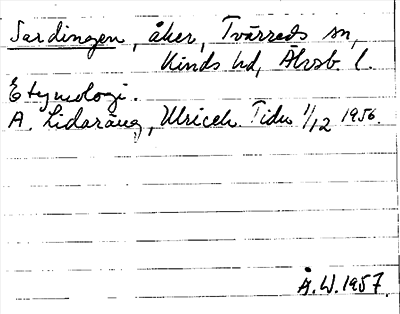 Sardingen, åker, Tvärreds sn,
Kinds hd, Älvsb. l.
Etymologi.
A. Lidaräng, Ulriceh. Tidn 1/12 1956.
Å.W.1957.